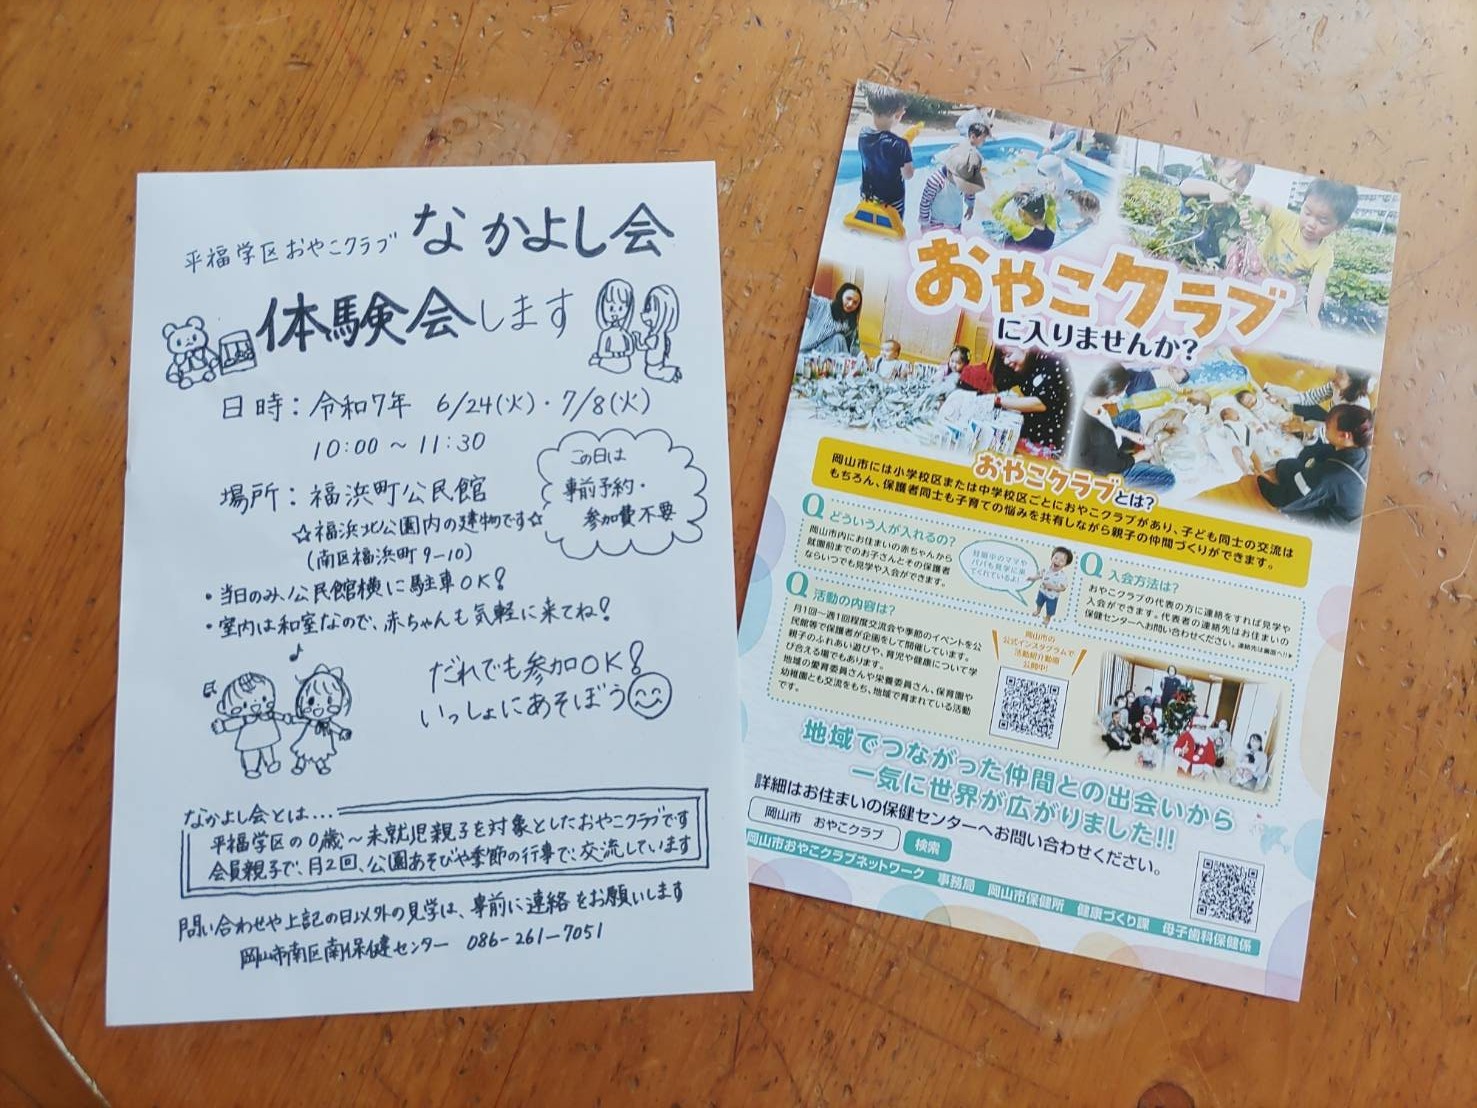 平福学区おやこクラブ なかよし会
体験会します
日時：令和7年 6/24(火)・7/8(火)
10:00～11:30
この日は
事前予約・
参加費不要
場所：福浜町公民館
☆福浜北公園内の建物です☆
(南区福浜町9-10)
・当日のみ、公民館横に駐車OK!
・室内は和室なので、赤ちゃんも気軽に来てね!
だれでも参加OK!
いっしょにあそぼう
なかよし会とは...
平福学区の0歳～未就児親子を対象としたおやこクラブです
会員親子で、月2回、公園あそびや季節の行事で、交流しています
問い合わせや上記の日以外の見学は、事前に連絡をお願いします
岡山市南区南保健センター 086-261-7051
おやこクラブ
に入りませんか?
おやこクラブとは?
岡山市には小学校区または中学校区ごとにおやこクラブがあり、子ども同士の交流は
もちろん、保護者同士も子育ての悩みを共有しながら親子の仲間づくりができます。
Q どういう人が入れるの?
岡山市内にお住まいの赤ちゃんから
就園前までのお子さんとその保護者
ならいつでも見学や入会ができます。
妊娠中のママや
パパも見学に来
てくれているよ!
Q 入会方法は?
おやこクラブの代表の方に連絡をすれば見学や
入会ができます。代表者の連絡先はお住まいの
保健センターへお問い合わせください。連絡先は裏面へ!!
Q 活動の内容は?
月1回～週1回程度交流会や季節のイベントを公
民館等で保護者が企画をして開催しています。
親子のふれあい遊びや、育児や健康について学
び合える場でもあります。
地域の愛育委員さんや栄養委員さん、保育園や
幼稚園とも交流をもち、地域で育まれている活動
です。
岡山市の
公式インスタグラムで
活動紹介動画
公開中!
地域でつながった仲間との出会いから
一気に世界が広がりました!!
詳細はお住まいの保健センターへお問い合わせください。
岡山市 おやこクラブ 検索
岡山市おやこクラブネットワーク 事務局 岡山市保健所 健康づくり課 母子歯科保健係